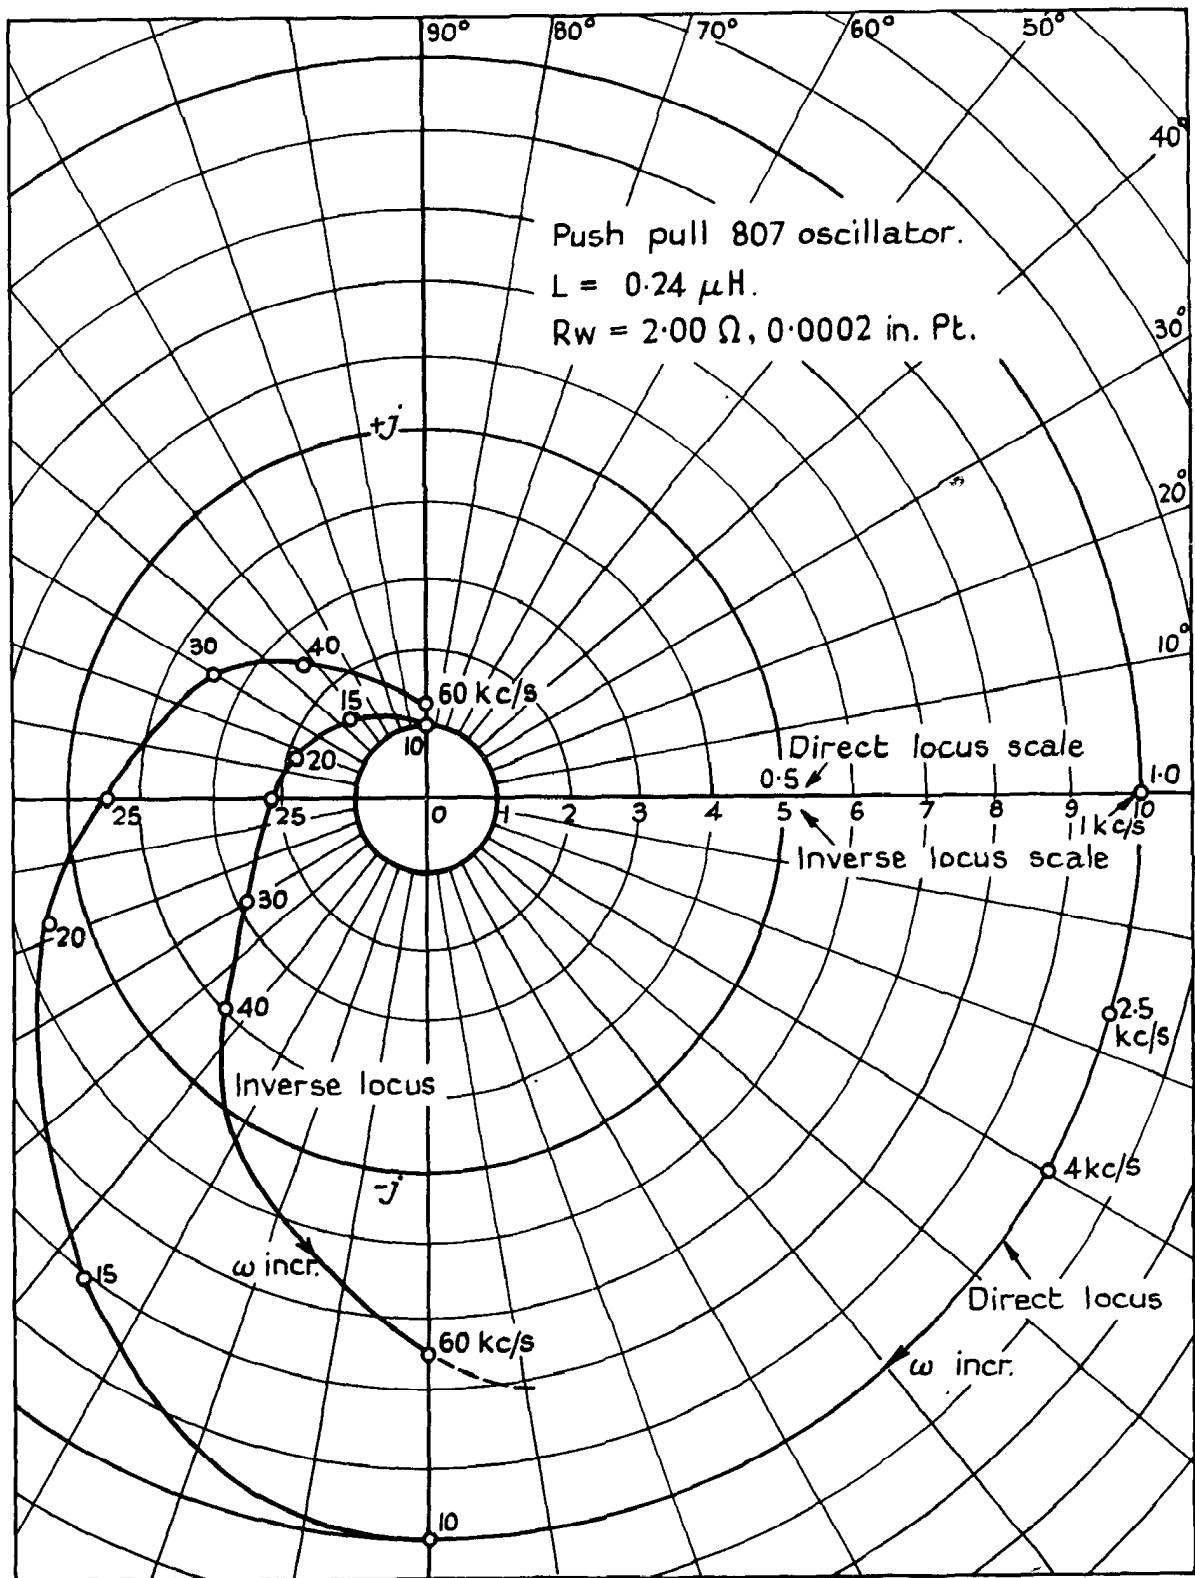 90° 80° 70° 60° 50°
40°
Push pull 807 oscillator.
L = 0·24 μH.
Rw = 2·00 Ω, 0·0002 in. Pt.
30°
+j
20°
30 40
10°
60 kc/s
15
10
20
Direct locus scale
0·5 1·0
25 25 0 1 2 3 4 5 6 7 8 9 10
1 kc/s
Inverse locus scale
30
20
40
2·5
kc/s
Inverse locus
4 kc/s
-j
ω incr.
15
Direct locus
60 kc/s
ω incr.
10